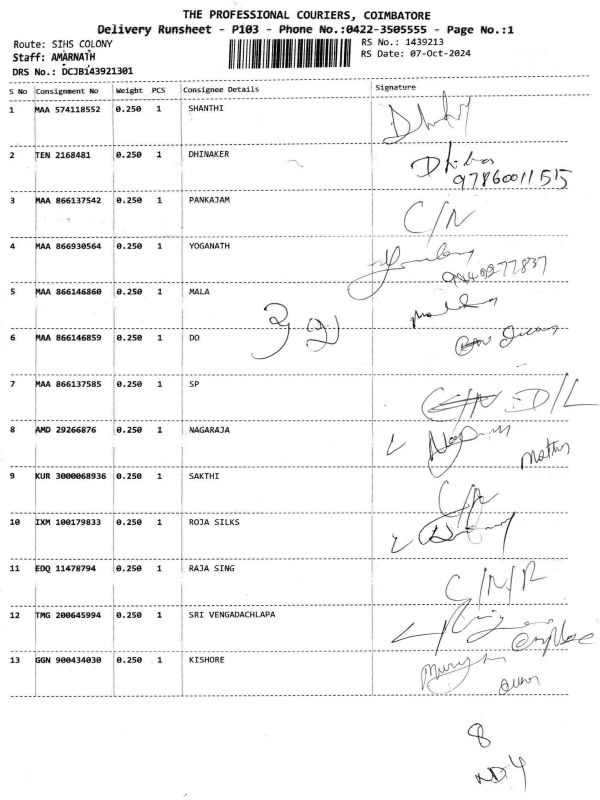 THE PROFESSIONAL COURIERS, COIMBATORE
Delivery Runsheet - P103 - Phone No.:0422-3505555 - Page No.:1
Route: SIHS COLONY
RS No.: 1439213
Staff: AMARNATH
RS Date: 07-Oct-2024
DRS No.: DCJB143921301
S No Consignment No Weight PCS Consignee Details Signature
1 MAA 574118552 0.250 1 SHANTHI
2 TEN 2168481 0.250 1 DHINAKER
9786001 1515
3 MAA 866137542 0.250 1 PANKAJAM C/N
4 MAA 866930564 0.250 1 YOGANATH
5 MAA 866146860 0.250 1 MALA
6 MAA 866146859 0.250 1 DO
7 MAA 866137585 0.250 1 SP D/L
8 AMD 29266876 0.250 1 NAGARAJA
9 KUR 3000068936 0.250 1 SAKTHI
10 IXM 100179833 0.250 1 ROJA SILKS
11 EDQ 11478794 0.250 1 RAJA SING C/N/R
12 TMG 200645994 0.250 1 SRI VENGADACHLAPA
13 GGN 900434030 0.250 1 KISHORE
8
ND 4